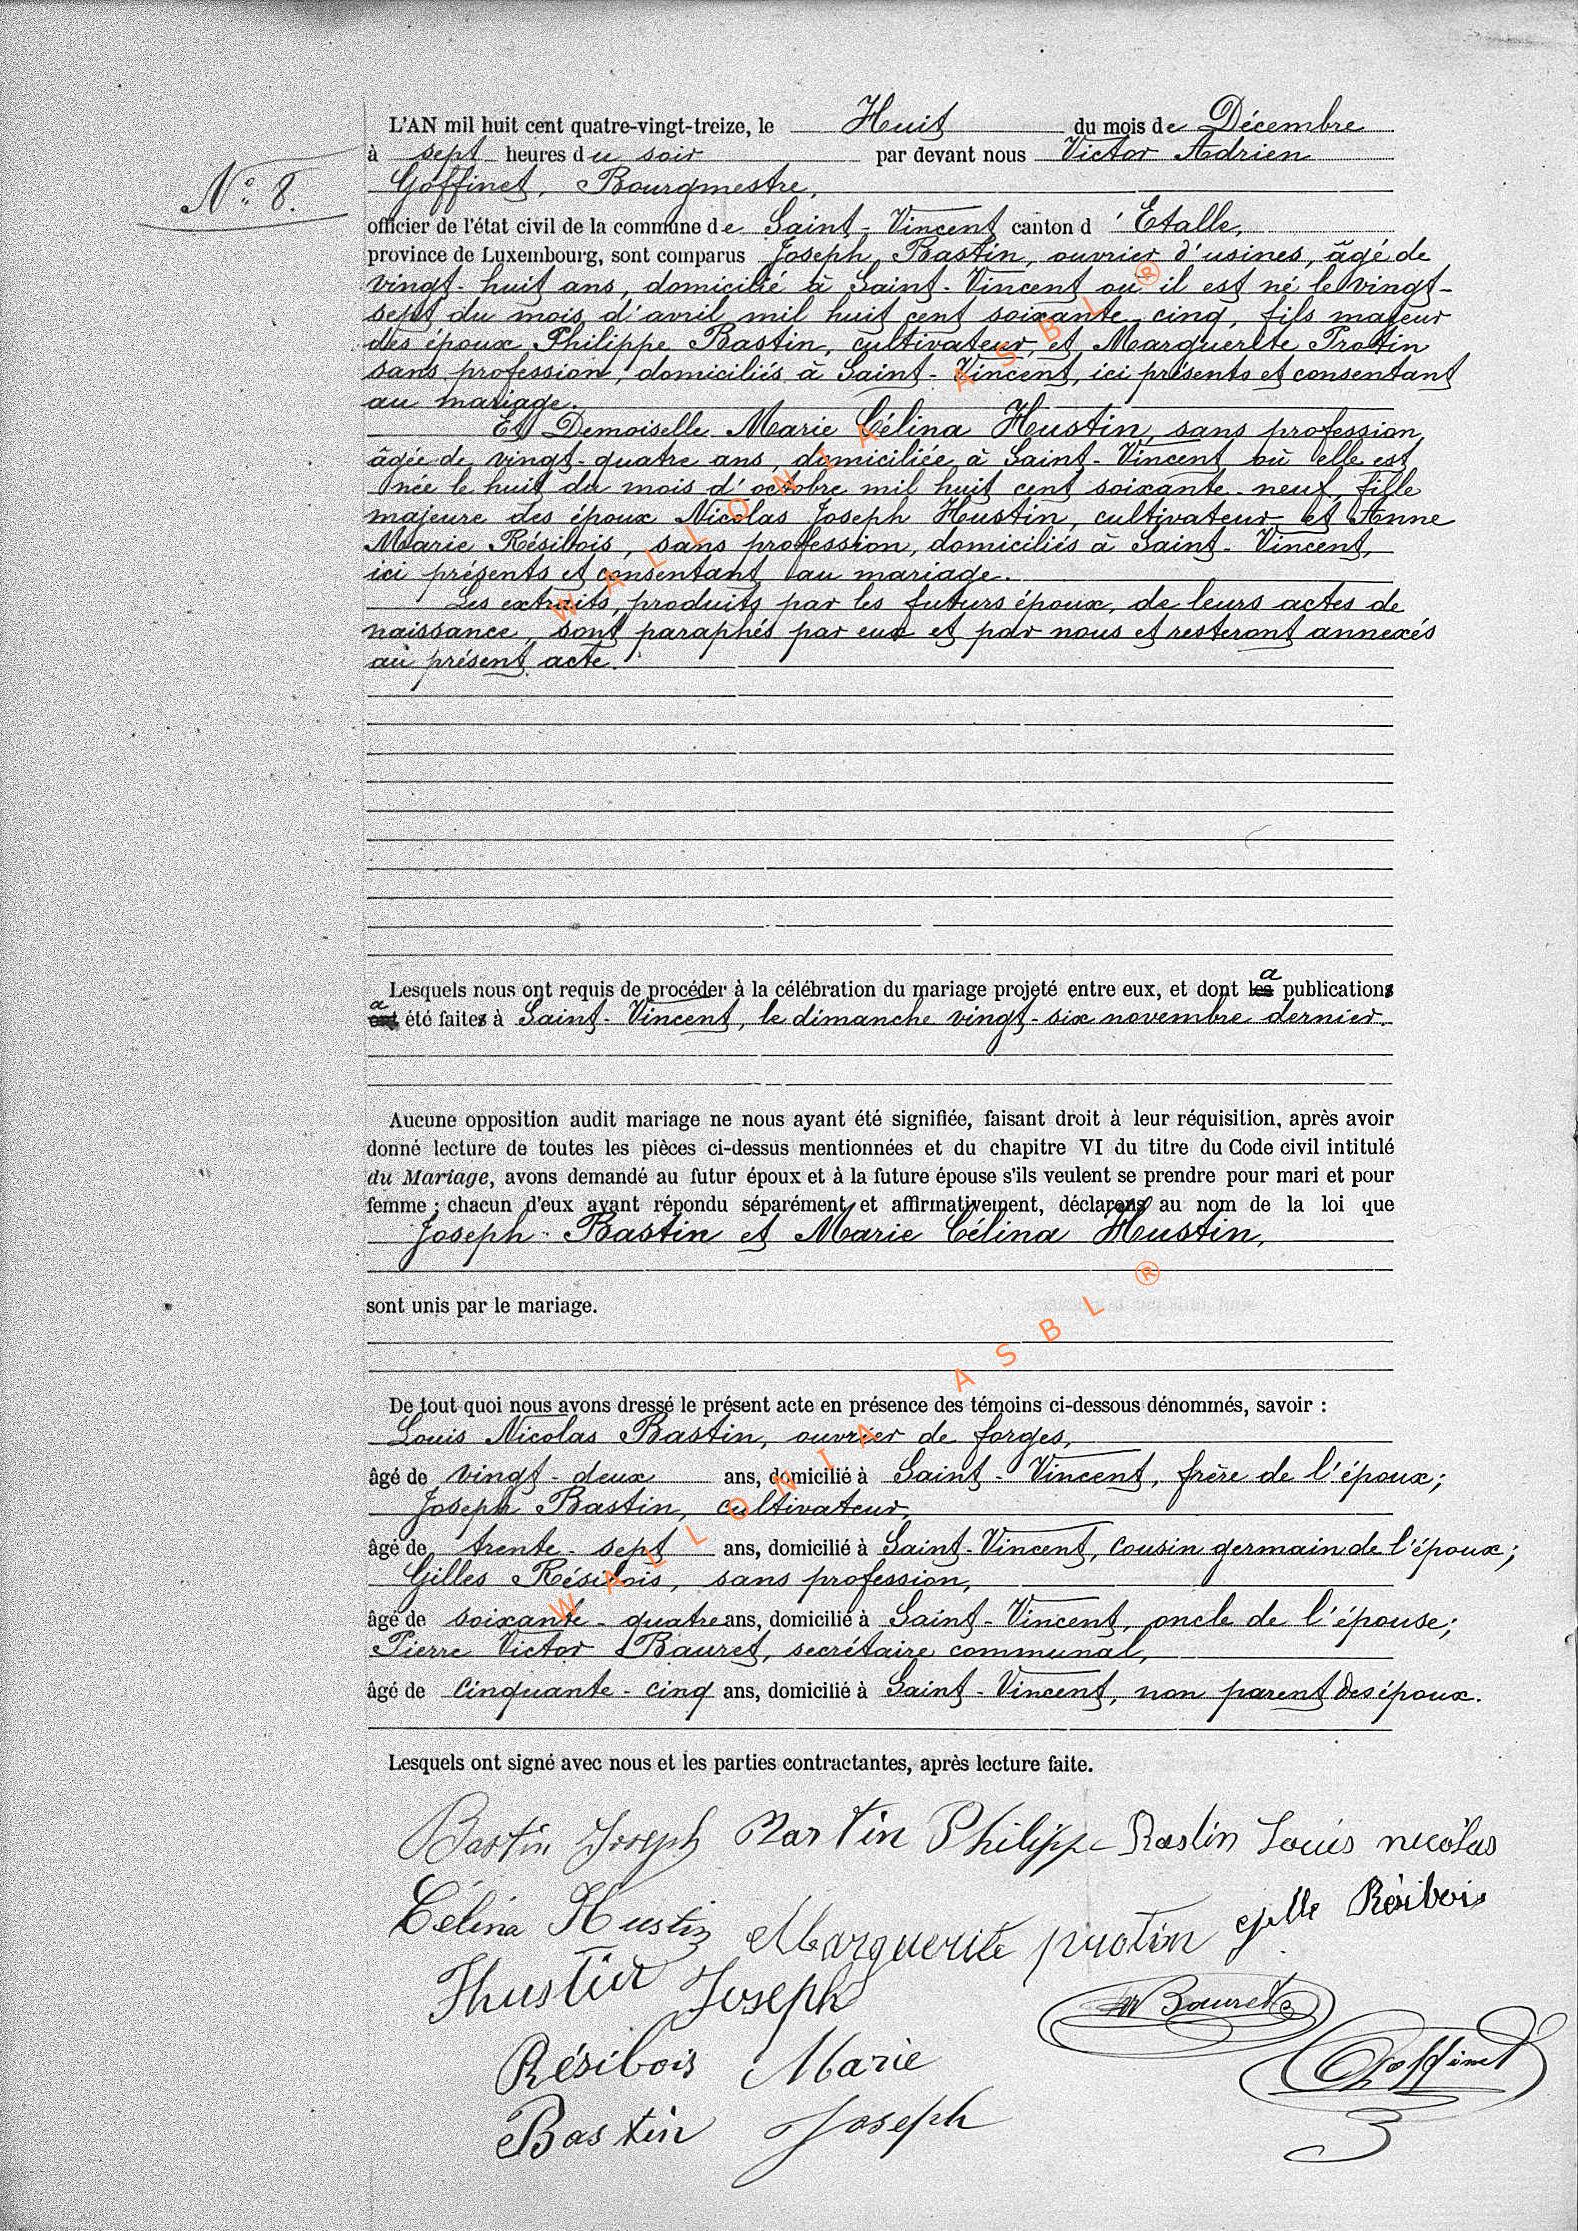 L'AN mil huit cent quatre-vingt-treize, le Huit du mois de Décembre
à sept heures du soir par devant nous Victor Adrien
N° 8.
Goffinet, Bourgmestre,
officier de l'état civil de la commune de Saint-Vincent canton d'Etalle,
province de Luxembourg, sont comparus Joseph Bastin, ouvrier d'usines, âgé de
vingt-huit ans, domicilié à Saint-Vincent où il est né le vingt-
sept du mois d'avril mil huit cent soixante-cinq, fils majeur
des époux Philippe Bastin, cultivateur, et Marguerite Protin
sans profession, domiciliés à Saint-Vincent, ici présents et consentant
au mariage.
Et Demoiselle Marie Célina Hustin, sans profession,
âgée de vingt-quatre ans, domiciliée à Saint-Vincent où elle est
née le huit du mois d'octobre mil huit cent soixante-neuf, fille
majeure des époux Nicolas Joseph Hustin, cultivateur et Anne
Marie Résibois, sans profession, domiciliés à Saint-Vincent,
ici présents et consentant au mariage.
Les extraits, produits par les futurs époux, de leurs actes de
naissance, sont paraphés par eux et par nous et resteront annexés
au présent acte.
Lesquels nous ont requis de procéder à la célébration du mariage projeté entre eux, et dont les a publications
ont a été faites à Saint-Vincent, le dimanche vingt-six novembre dernier.
Aucune opposition audit mariage ne nous ayant été signifiée, faisant droit à leur réquisition, après avoir
donné lecture de toutes les pièces ci-dessus mentionnées et du chapitre VI du titre du Code civil intitulé
du Mariage, avons demandé au futur époux et à la future épouse s'ils veulent se prendre pour mari et pour
femme ; chacun d'eux ayant répondu séparément et affirmativement, déclarons au nom de la loi que
Joseph Bastin et Marie Célina Hustin,
sont unis par le mariage.
De tout quoi nous avons dressé le présent acte en présence des témoins ci-dessous dénommés, savoir :
Louis Nicolas Bastin, ouvrier de forges,
âgé de vingt-deux ans, domicilié à Saint-Vincent, frère de l'époux;
Joseph Bastin, cultivateur,
âgé de trente-sept ans, domicilié à Saint-Vincent, cousin germain de l'époux;
Gilles Résibois, sans profession,
âgé de soixante-quatre ans, domicilié à Saint-Vincent, oncle de l'épouse;
Pierre Victor Bauret, secrétaire communal,
âgé de cinquante-cinq ans, domicilié à Saint-Vincent, non parent des époux.
Lesquels ont signé avec nous et les parties contractantes, après lecture faite.
Bastin Joseph Bastin Philippe Bastin Louis nicolas
Célina Hustin Marguerite protin gille Résibois
Hustin Joseph
Bauret
Résibois Marie
Goffinet
Bastin Joseph
WALLONIA ASBL ®
WALLONIA ASBL ®